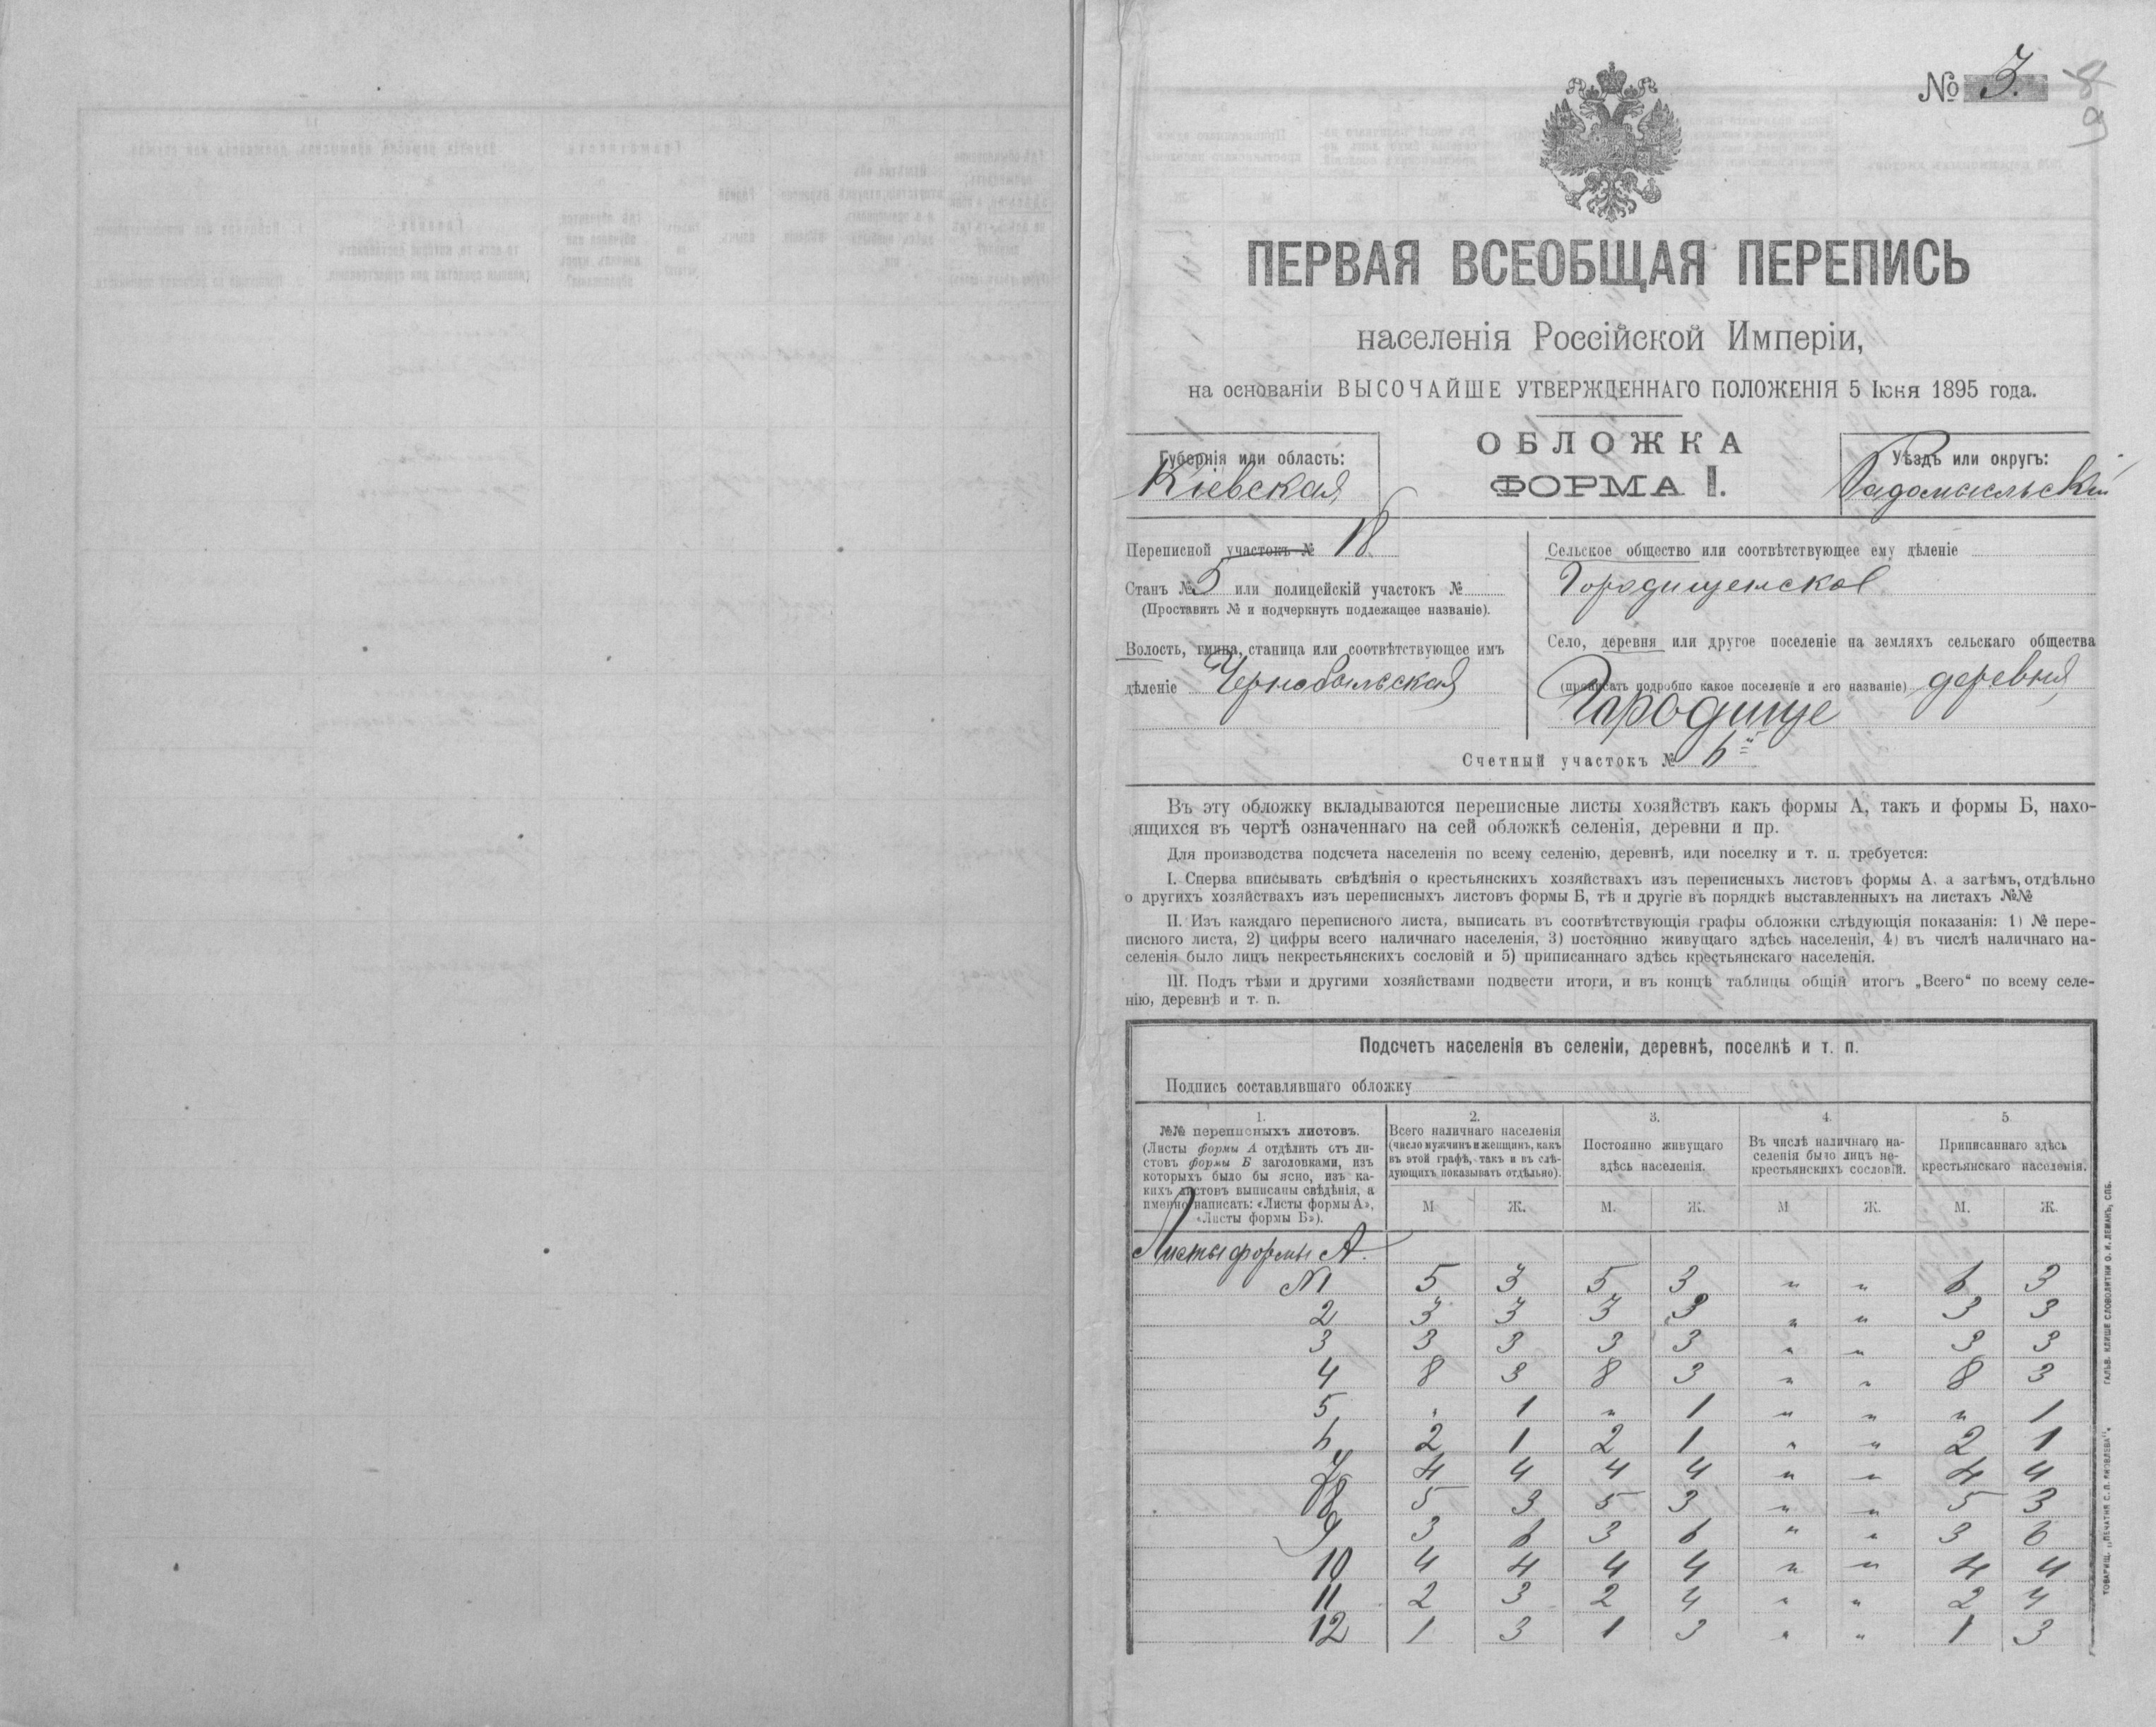 № 3.
8
9
ПЕРВАЯ ВСЕОБЩАЯ ПЕРЕПИСЬ
населенія Россійской Имперіи,
на основаніи ВЫСОЧАЙШЕ УТВЕРЖДЕННАГО ПОЛОЖЕНІЯ 5 Іюня 1895 года.
ОБЛОЖКА
ФОРМА I.
Губернія или область:
Кіевская
Уѣздъ или округъ:
Радомысльскій
Переписной участокъ № 18
Станъ № 5 или полицейскій участокъ №
(Проставить № и подчеркнуть подлежащее названіе).
Волость, гмина, станица или соотвѣтствующее имъ
дѣленіе Чернобыльская
Сельское общество или соотвѣтствующее ему дѣленіе
Городищенское
Село, деревня или другое поселеніе на земляхъ сельскаго общества
(прописать подробно какое поселеніе и его названіе) деревня
Городище
Счетный участокъ № 6й
Въ эту обложку вкладываются переписные листы хозяйствъ какъ формы А, такъ и формы Б, нахо-
ящихся въ чертѣ означеннаго на сей обложкѣ селенія, деревни и пр.
Для производства подсчета населенія по всему селенію, деревнѣ, или поселку и т. п. требуется:
I. Сперва вписывать свѣдѣнія о крестьянскихъ хозяйствахъ изъ переписныхъ листовъ формы А, а затѣмъ, отдѣльно
о другихъ хозяйствахъ изъ переписныхъ листовъ формы Б, тѣ и другіе въ порядкѣ выставленныхъ на листахъ №№
II. Изъ каждаго переписного листа, выписать въ соотвѣтствующія графы обложки слѣдующія показанія: 1) № пере-
писного листа, 2) цифры всего наличнаго населенія, 3) постоянно живущаго здѣсь населенія, 4) въ числѣ наличнаго на-
селенія было лицъ некрестьянскихъ сословій и 5) приписаннаго здѣсь крестьянскаго населенія.
III. Подъ тѣми и другими хозяйствами подвести итоги, и въ концѣ таблицы общій итогъ „Всего“ по всему селе-
нію, деревнѣ и т. п.
Подсчетъ населенія въ селеніи, деревнѣ, поселкѣ и т. п.
Подпись составлявшаго обложку
1.
№№ переписныхъ листовъ.
(Листы формы А отдѣлить отъ ли-
стовъ формы Б заголовками, изъ
которыхъ было бы ясно, изъ ка-
кихъ листовъ выписаны свѣдѣнія, а
именно написать: «Листы формы А»,
«Листы формы Б»).
2.
Всего наличнаго населенія
(число мужчинъ и женщинъ, какъ
въ этой графѣ, такъ и въ слѣ-
дующихъ показывать отдѣльно).
3.
Постоянно живущаго
здѣсь населенія.
4.
Въ числѣ наличнаго на-
селенія было лицъ не-
крестьянскихъ сословій.
5
Приписаннаго здѣсь
крестьянскаго населенія.
М Ж. М. Ж. М Ж. М. Ж.
Листы формы А.
№1 5 3 5 3 " " 6 3
2 3 3 3 3 " " 3 3
3 3 3 3 3 " " 3 3
4 8 3 8 3 " " 8 3
5 " 1 " 1 " " " 1
6 2 1 2 1 " " 2 1
7 4 4 4 4 " " 4 4
8 5 3 5 3 " " 5 3
9 3 6 3 6 " " 3 6
10 4 4 4 4 " " 4 4
11 2 3 2 4 " " 2 4
12 1 3 1 3 " " 1 3
ТОВАРИЩ. „ПЕЧАТНЯ С. П. ЯКОВЛЕВА“. ГАЛЬВ. КЛИШЕ СЛОВОЛИТНИ О. И. ЛЕМАНЪ, СПБ.